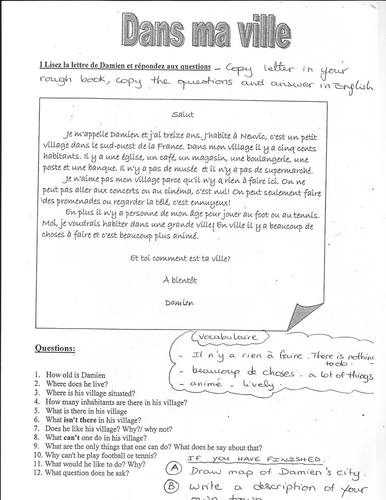 Dans ma ville
I Lisez la lettre de Damien et répondez aux questions – Copy letter in your
rough book, copy the questions and answer in English
Salut
Je m'appelle Damien et j'ai treize ans. J'habite à Neuvic, c'est un petit
village dans le sud-ouest de la France. Dans mon village il y a cinq cents
habitants. Il y a une église, un café, un magasin, une boulangerie, une
poste et une banque. Il n'y a pas de musée et il n'y a pas de supermarché.
Je n'aime pas mon village parce qu'il n'y a rien à faire ici. On ne
peut pas aller aux concerts ou au cinéma, c'est nul! On peut seulement faire
des promenades ou regarder la télé, c'est ennuyeux!
En plus il n'y a personne de mon âge pour jouer au foot ou au tennis.
Moi, je voudrais habiter dans une grande ville! En ville il y a beaucoup de
choses à faire et c'est beaucoup plus animé.
Et toi comment est ta ville?
À bientôt
Damien
Vocabulaire
- Il n'y a rien à faire. There is nothing
to do.
- beaucoup de choses - a lot of things
- animé - lively.
Questions:
1. How old is Damien
2. Where does he live?
3. Where is his village situated?
4. How many inhabitants are there in his village?
5. What is there in his village
6. What isn't there in his village?
7. Does he like his village? Why?/ why not?
8. What can't one do in his village?
9. What are the only things that one can do? What does he say about that?
10. Why can't he play football or tennis?
11. What would he like to do? Why?
12. What question does he ask?
IF YOU HAVE FINISHED
A Draw map of Damien's city.
B Write a description of your
own town